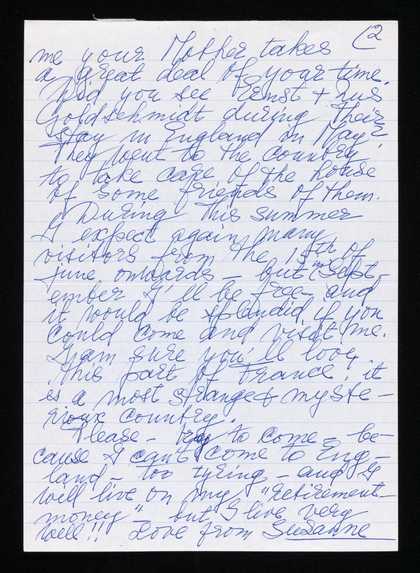 (2
me your Mother takes
a great deal of your time.
Did you see Ernst + Sus
Goldschmidt during their
stay in England in May?
They went to the country
to take care of the house
of some friends of them.
During this summer
I expect again many
visitors from the 15th of
June onwards – but in Sept-
ember I'll be free – and
it would be splendid if you
could come and visit me.
I am sure you'll love
this part of France. it
is a most strange & myste-
rioux country.
Please – try to come – be-
cause I can't come to Eng-
land – too tyring – and I
well live on my "retirement-
money" – but I live very
well!! Love from Suzanne